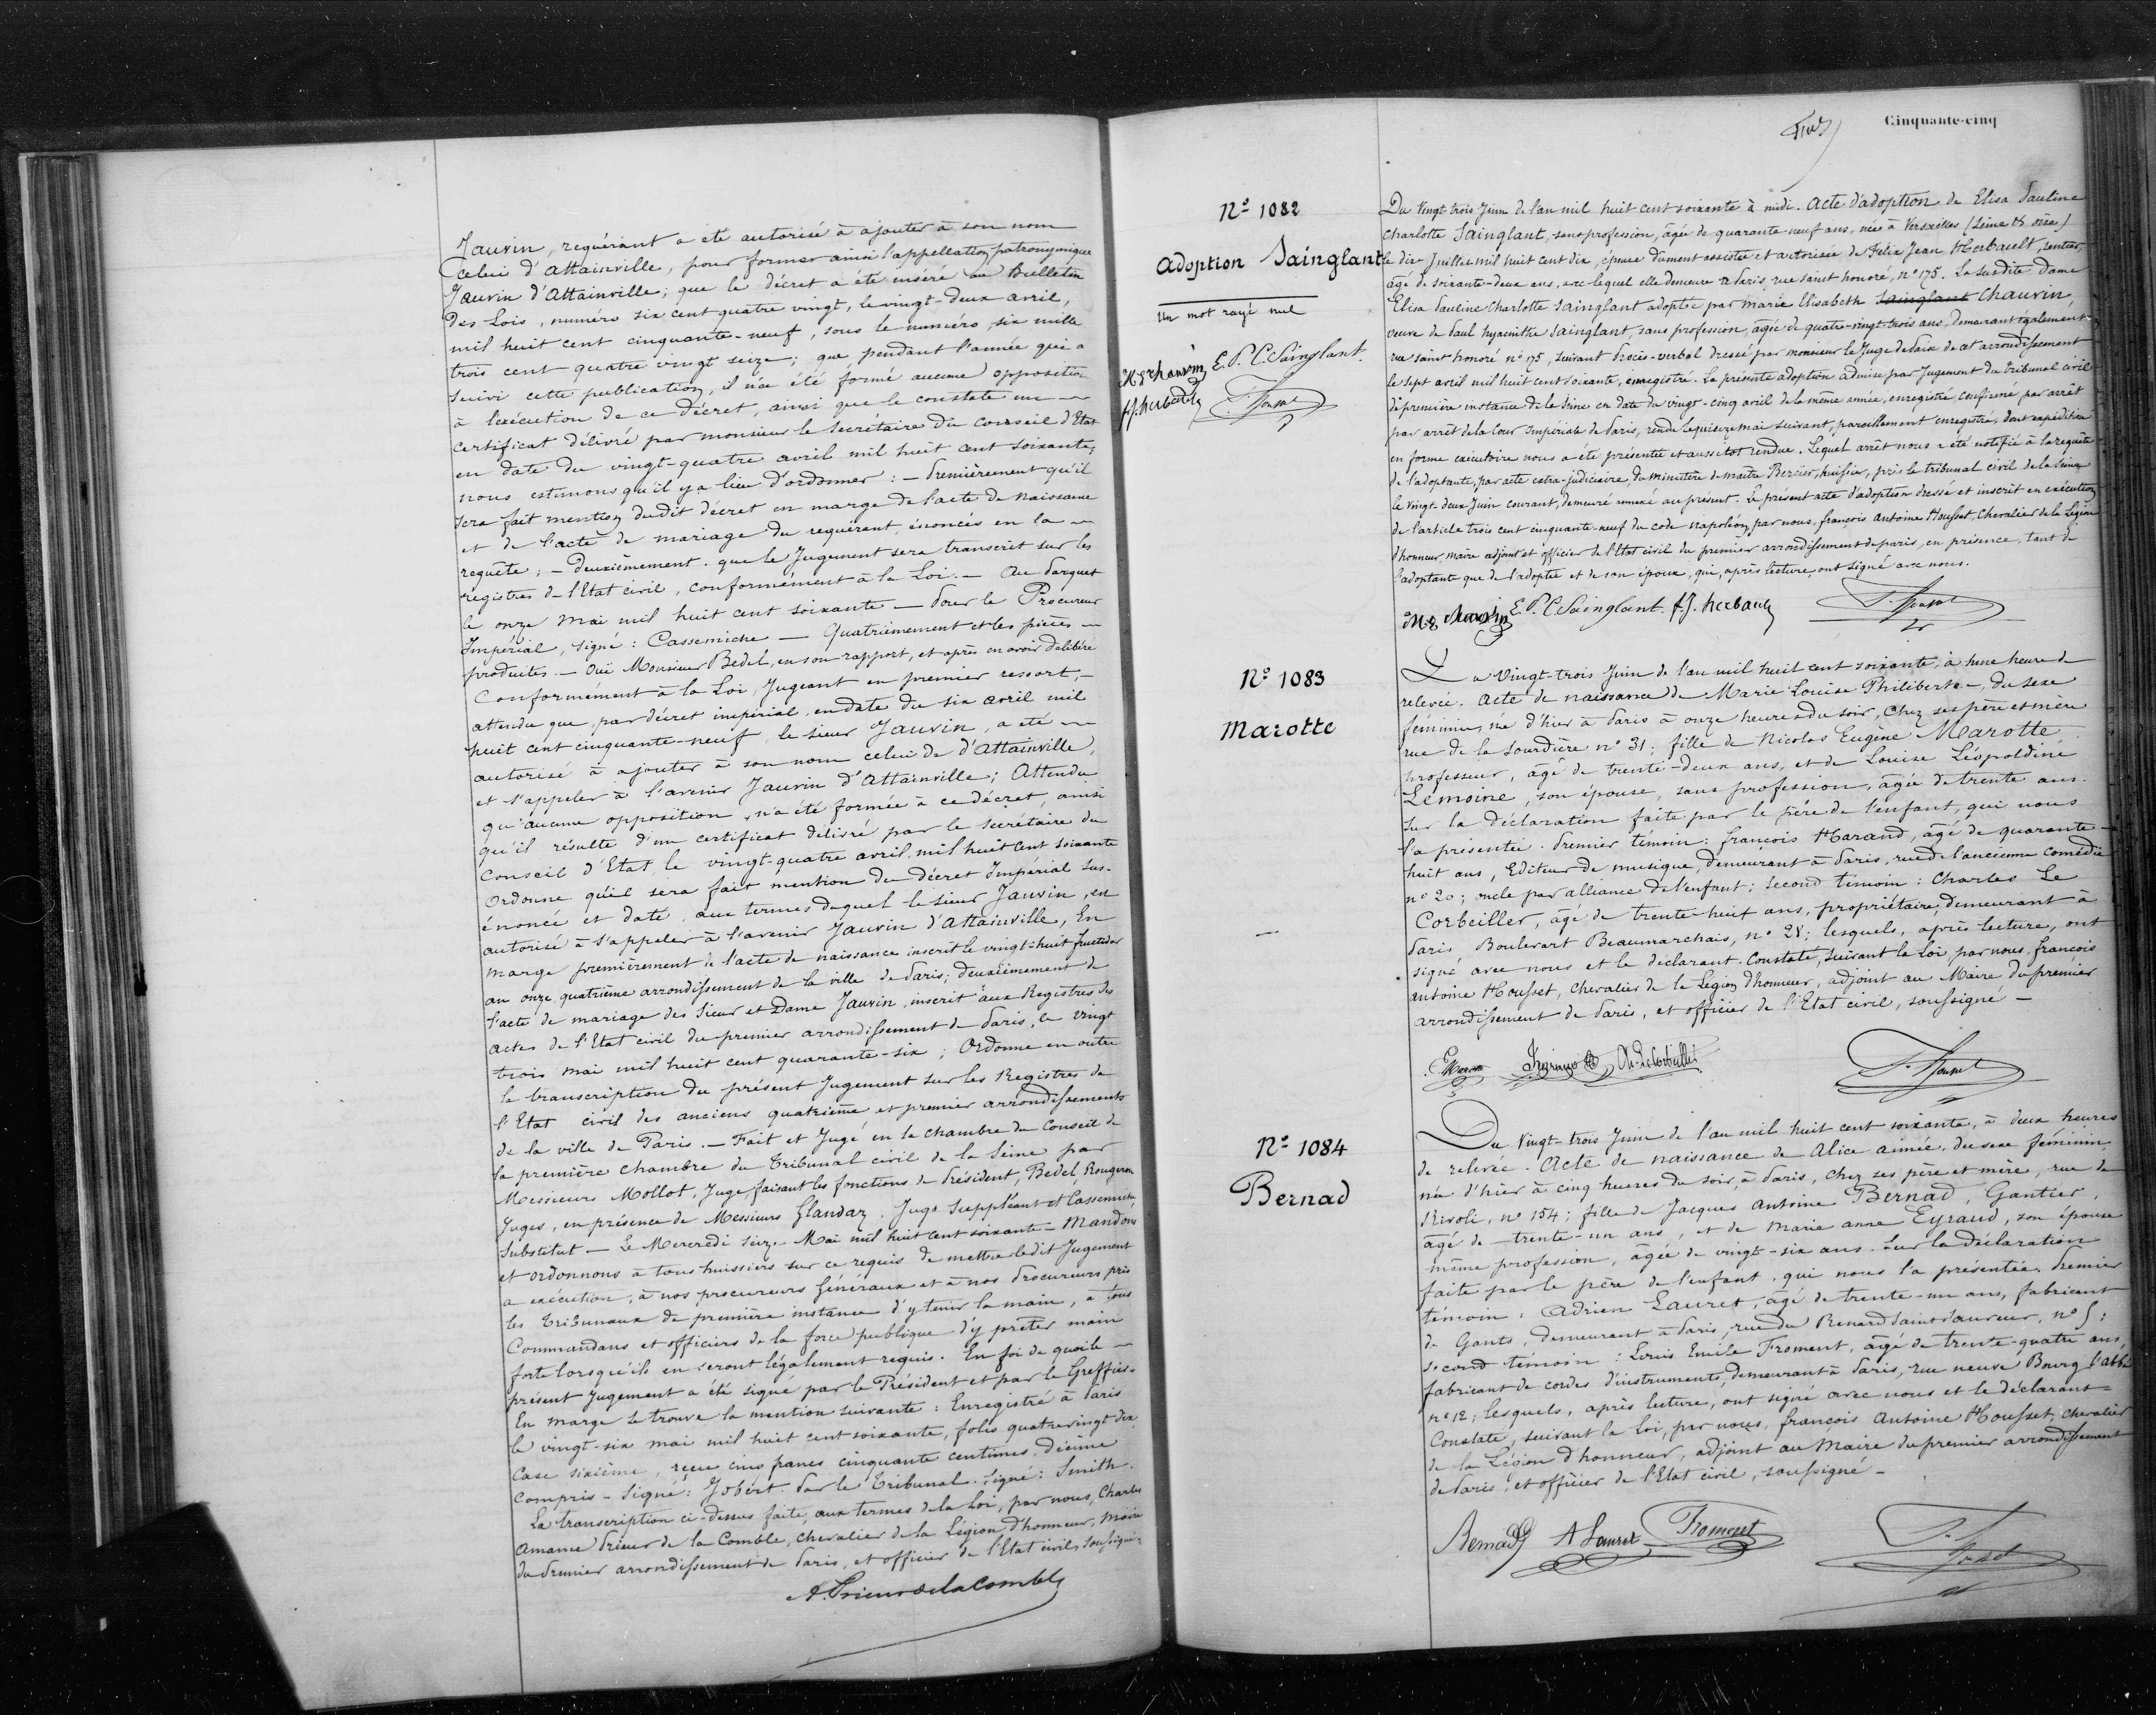 Jauvin, requérant a été autorisé à ajouter à son nom
celui d'Attainville, pour former ainsi l'appellation patronymique
Jauvin d'Attainville; que le décret a été inséré au Bulletin
des Lois, numéro six cent quatre vingt, le vingt-deux avril,
mil huit cent cinquante-neuf, sous le numéro six mille
trois cent quatre vingt seize; que pendant l'année qui a
suivi cette publication, il n'a été formé aucune opposition
à l'exécution de ce décret, ainsi que le constate un
certificat délivré par monsieur le Secrétaire du conseil d'Etat
en date du vingt-quatre avril mil huit cent soixante;
nous estimons qu'il y a lieu d'ordonner: - Premièrement qu'il
sera fait mention dudit décret en marge de l'acte de naissance
et de l'acte de mariage du requérant, énoncés en la
requête; - Deuxièmement. que le Jugement sera transcrit sur les
régistres de l'Etat civil, conformément à la Loi. - Au Parquet
le onze mai mil huit cent soixante - Pour le Procureur
Impérial, signé: Cassemiche - Quatrièmement et les pièces
produites. - Oui Monsieur Bedel, en son rapport, et après en avoir délibéré
Conformément à la Loi, Jugeant en premier ressort, -
attendu que, par décret impérial, en date du six avril mil
huit cent cinquante-neuf, le sieur Jauvin, a été
autorisé à ajouter à son nom celui de d'Attainville,
et s'appeler à l'avenir Jauvin d'Attainville; Attendu
qu'aucune opposition n'a été formée à ce décret, ainsi
qu'il résulte d'un certificat délivré par le secrétaire du
Conseil d'Etat, le vingt-quatre avril, mil huit cent soixante
Ordonne qu'il sera fait mention du décret Impérial sus-
énoncé et daté, aux termes duquel le sieur Jauvin, est
autorisé à s'appeler à l'avenir Jauvin d'Attainville, En
marge premièrement de l'acte de naissance inscrit le vingt-huit fructidor
an onze quatrième arrondissement de la ville de Paris; deuxièmement de
l'acte de mariage des Sieur et Dame Jauvin, inscrit aux Registres des
actes de l'Etat civil du premier arrondissement de Paris, le vingt
trois mai mil huit cent quarante-six; Ordonne en outre
la transcription du présent Jugement sur les Registres de
l'Etat civil des anciens quatrième et premier arrondissements
de la ville de Paris. - Fait et Jugé en la chambre du Conseil de
la première chambre du Tribunal civil de la Seine par
Messieurs Mollot, Juge faisant les fonctions de Président, Bedel, Rougeron
Juges, en présence de Messieurs Glandaz, Juge Suppléant et Cassemiche
Substitut - Le Mercredi Seize Mai mil huit cent soixante - Mandons
et ordonnons à tous huissiers sur ce requis de mettre ledit Jugement
a exécution, à nos procureurs Généraux et à nos Procureurs près
les Tribunaux de première instance d'y tenir la main, à tous
Commandans et officiers de la force publique d'y prêter main
forte lorsqu'ils en seront légalement requis. En foi de quoi le
présent Jugement a été signé par le Président et par le Greffier.
En marge se trouve la mention suivante: Enregistré à Paris
le vingt-six mai mil huit cent soixante, folio quatre vingt dix
Case sixième, reçu cinq francs cinquante centimes, décime
compris - Signé: Jobert. Par le Tribunal. Signé: Smith.
La transcription ci-dessus faite, aux termes de la Loi, par nous, Charles
Amance Prieur de la Comble, chevalier de la Légion d'honneur, Maire
du Premier arrondissement de Paris, et officier de l'Etat civil, soussigné;
A. Prieur de la Comble
Cinquante-cinq
No 1082
Adoption Sainglant
Un mot rayé nul
M. E. Chauvin E. P. C. Sainglant.
f. J. herbault
Du Vingt trois Juin de l'an mil huit cent soixante à midi. Acte d'adoption de Elisa Pauline
Charlotte Sainglant, sans profession, âgée de quarante neuf ans, née à Versailles (Seine et oise)
le dix Juillet mil huit cent dix, épouse dument assistée et autorisée de Félix Jean Herbault, rentier,
âgé de soixante-deux ans, avec lequel elle demeure à Paris, rue saint honoré, no 175. La susdite Dame
Elisa Pauline Charlotte Sainglant adoptée par Marie Elisabeth Sainglant Chauvin,
veuve de Paul hyacinthe Sainglant, sans profession, âgée de quatre-vingt-trois ans, demeurant également
rue saint honoré no 175, suivant Procès-verbal dressé par monsieur le Juge de Paix de cet arrondissement
le sept avril mil huit cent soixante, enregistré. La présente adoption admise par Jugement du tribunal civil
de première instance de la Seine en date du vingt-cinq avril de la même année, enregistré, confirmé par arrêt
par arrêt de la Cour Impériale de Paris, rendu le quinze mai suivant, pareillement enregistré, dont expédition
en forme exécutoire nous a été présentée et aussitôt rendue. Lequel arrêt nous a été notifié à la requête
de l'adoptante, par acte extra-judiciaire du ministère de maître Bercier, huissier, près le tribunal civil de la Seine
le vingt-deux Juin courant, demeuré annexé au présent. Le présent acte d'adoption dressé et inscrit en exécution
de l'article trois cent cinquante-neuf du code napoléon, par nous, françois Antoine Housset, Chevalier de la Légion
d'honneur, maire adjoint et officier de l'Etat civil du premier arrondissement de paris, en présence, tant de
l'adoptante que de l'adoptée et de son époux, qui, après lecture, ont signé avec nous.
M. E. Chauvin E. P. C. Sainglant. f. J. herbault
No 1083
Marotte
Du Vingt-trois Juin de l'an mil huit cent soixante, à une heure de
relevée. Acte de naissance de Marie Louise Philiberte -, du sexe
féminin, née d'hier à Paris à onze heures du soir, chez ses père et mère
rue de la Sourdière no 31; fille de Nicolas Eugène Marotte
professeur, âgé de trente-deux ans, et de Louise Léopoldine
Lemoine, son épouse, sans profession, âgée de trente ans.
Sur la déclaration faite par le père de l'enfant, qui nous
l'a présentée. Premier témoin: françois Harand, âgé de quarante-
huit ans, Editeur de musique, demeurant à Paris, rue de l'ancienne comédie
no 20; oncle par alliance de l'enfant; second témoin: Charles Le
Corbeiller, âgé de trente-huit ans, propriétaire, demeurant à
Paris Boulevart Beaumarchais, no 28; lesquels, après lecture, ont
signé avec nous et le déclarant. Constaté, suivant la Loi, par nous, françois
antoine Housset, chevalier de la Légion d'honneur, adjoint au Maire du premier
arrondissement de Paris, et officier de l'Etat civil, soussigné -
No 1084
Bernad
Du Vingt-trois Juin de l'an mil huit cent soixante, à deux heures
de relevée. Acte de naissance de Alice aimée, du sexe féminin,
née d'hier à cinq heures du soir, à Paris, chez ses père et mère, rue de
Rivoli, no 154; fille de Jacques Antoine Bernad, Gantier,
âgé de trente-un ans, et de Marie anne Eyraud, son épouse
même profession, âgée de vingt-six ans. Sur la déclaration
faite par le père de l'enfant, qui nous l'a présentée. Premier
témoin: Adrien Lauret, âgé de trente-un ans, fabricant
de Gants, demeurant à Paris, rue du Renard Saint Sauveur, no 5;
second témoin: Louis Emile Froment, âgé de trente-quatre ans,
fabricant de cordes d'instruments, demeurant à Paris, rue neuve Bourg l'abbé
no 12; lesquels, après lecture, ont signé avec nous et le déclarant =
Constaté, suivant la loi, par nous, françois Antoine Housset, chevalier
de la Légion d'honneur, adjoint au Maire du premier arrondissement
de Paris, et officier de l'Etat civil, soussigné -
Bernad A Lauret Froment